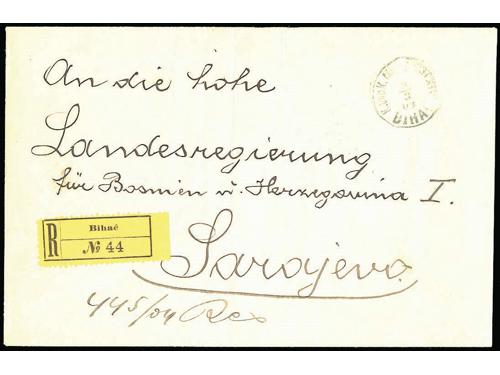 An die hohe
Landesregierung
für Bosnien u. Herzegovina I.
Sarajevo.
R
Bihać
№ 44
445/04 Res
BIHAĆ